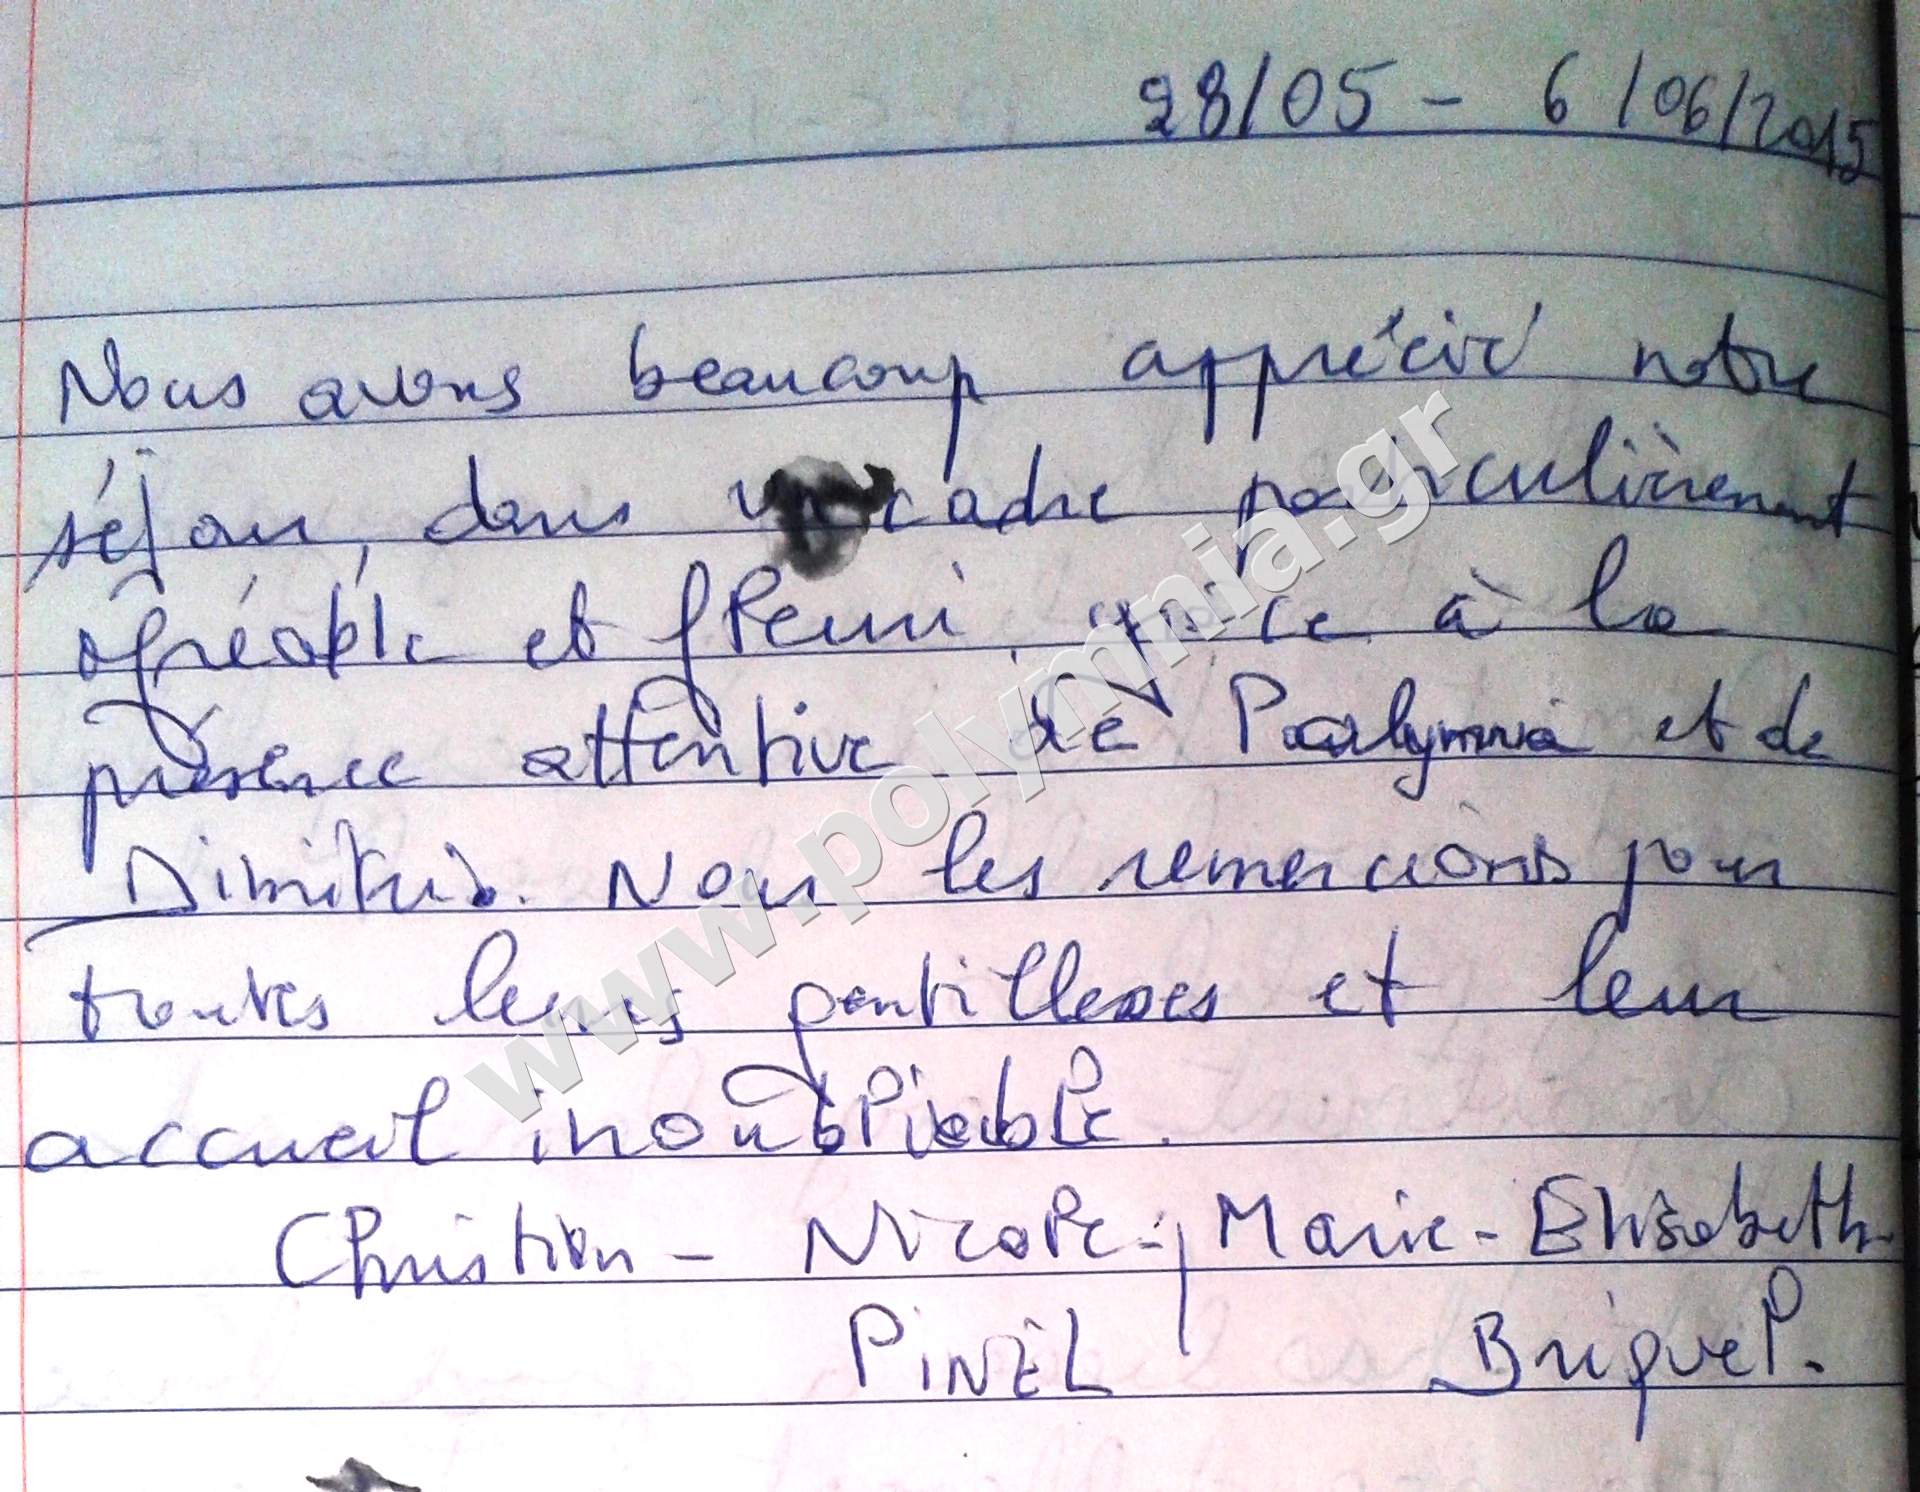 28/05 - 6/06/2015
Nous avons beaucoup apprécié notre
séjour, dans un cadre particulièrement
agréable et fleuri, grâce à la
présence attentive de Polymnia et de
Dimitris. Nous les remercions pour
toutes leurs gentillesses et leur
accueil inoubliable.
Christian - Nicole - Marie-Elisabeth
PINEL Briquel.
www.polymnia.gr